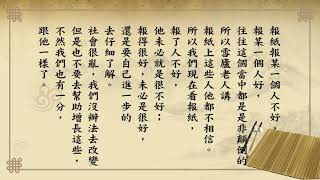 報紙報某一個人不好，
報某一個人好，
往往這個當中都是是非顛倒的
所以雪廬老人講
報紙上這些人他都不相信。
所以我們現在看報紙，
報了人不好，
他未必就是很不好；
報得很好，未必是很好，
還是要自己進一步的
去仔細了解。
社會很亂，我們沒辦法去改變
但是也不要去幫助增長這些，
不然我們也有一分，
跟他一樣了。